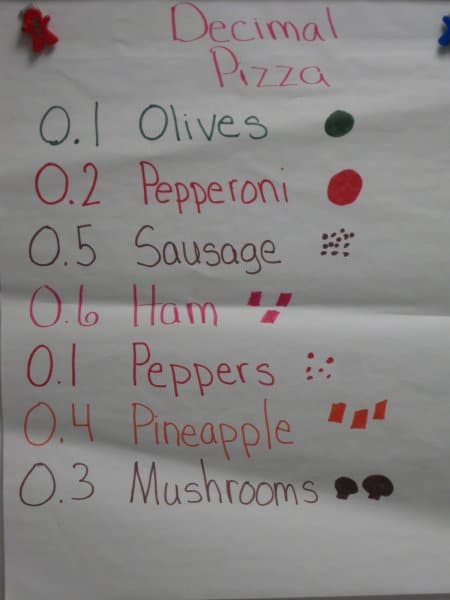 Decimal
Pizza
0.1 Olives
0.2 Pepperoni
0.5 Sausage
0.6 Ham
0.1 Peppers
0.4 Pineapple
0.3 Mushrooms